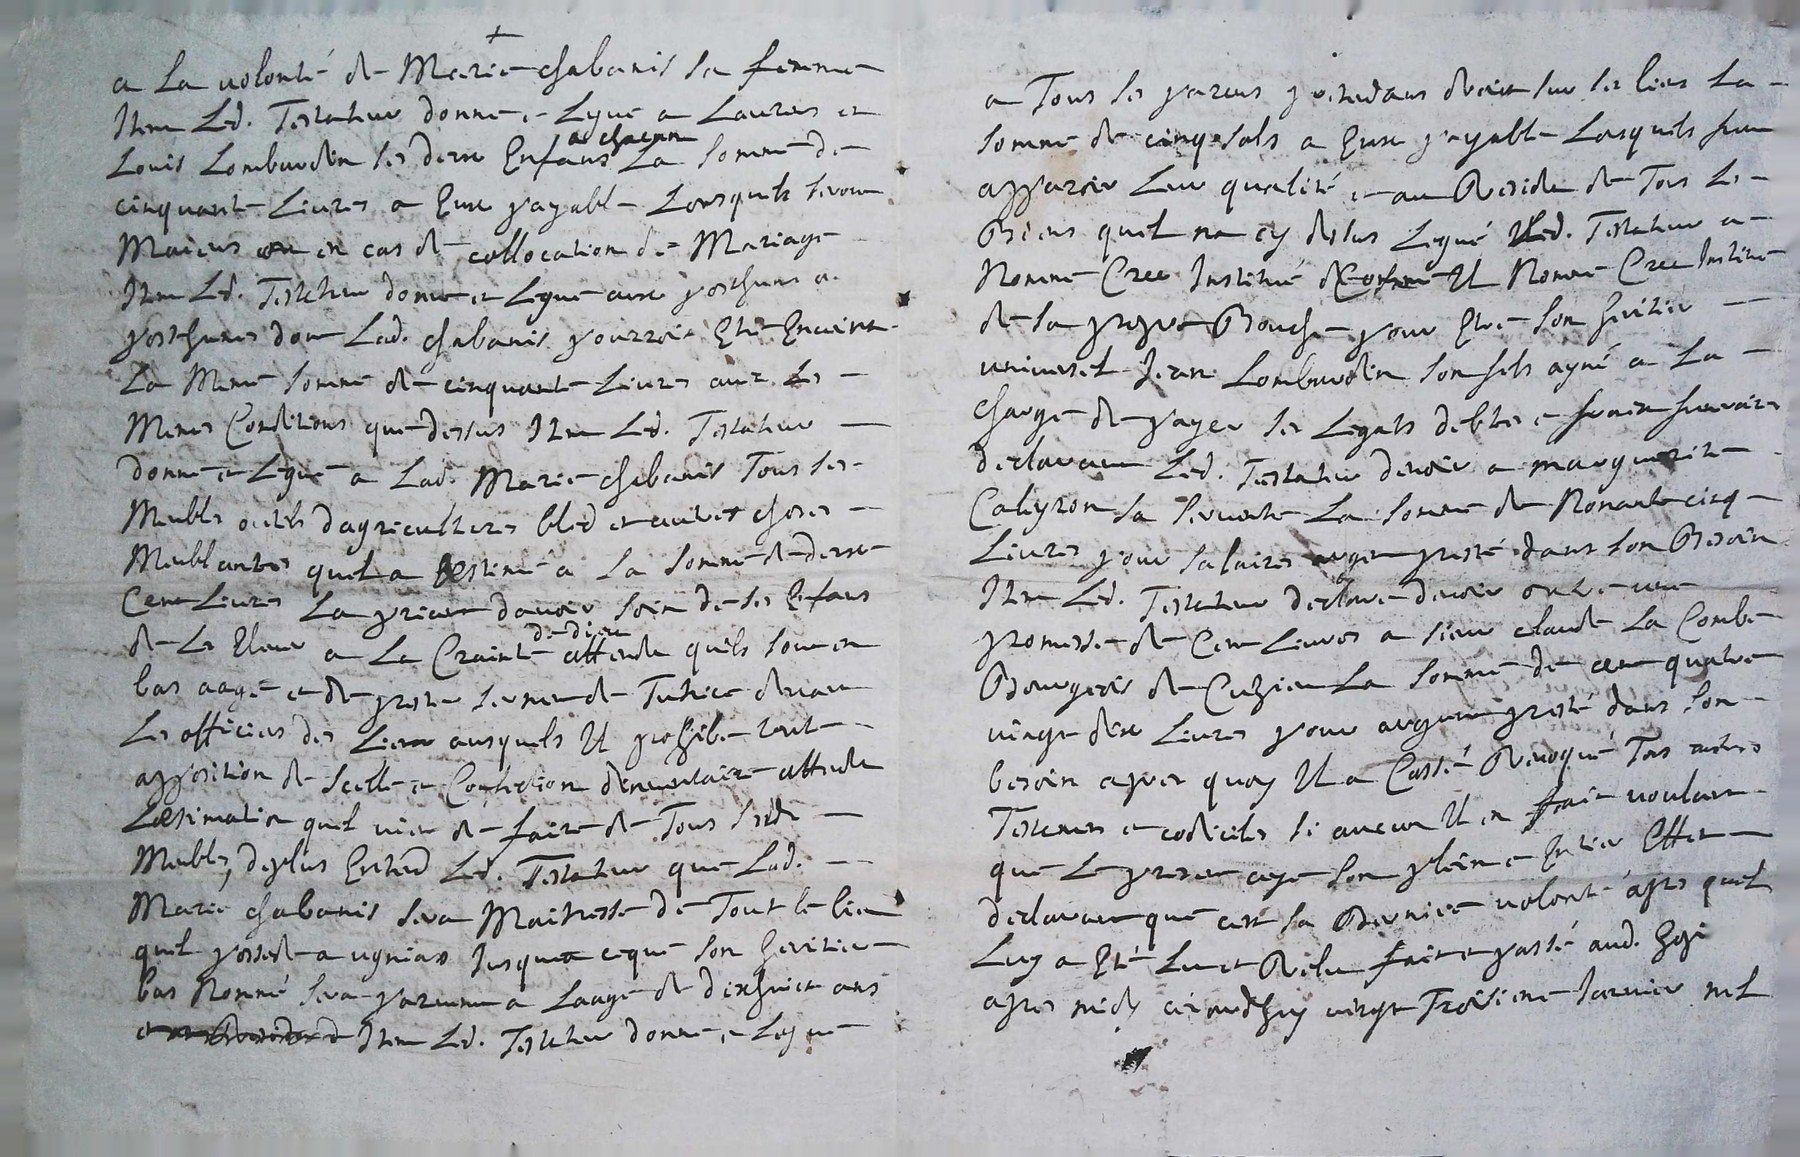 a La volonté de Marie chabanis sa femme
Item Led. Testateur donne et Legue a Laurens et
Louis Lombardin ses deux Enfans a chacun La somme de
cinquante Livres a Eux payable Lorsquils seront
Maieurs ou en cas de collocation de Mariage
Item Led. Testateur donne et Legue aux posthume a
posthumes dont Lad. chabanis pourroit Etre Enceinte
La Meme somme de cinquante Livres aux Les
Memes Conditions que dessus Item Led. Testateur
donne et Legue a Lad. Marie chabanis Tous ses
Meubles outils dagricultures bled et autres choses
Meublantes quil a Estimé a La somme de deux
Cent Livres La priant davoir soin de ses Enfans
de Les Elever a La Crainte de dieu attendu quils sont en
bas aage et de preter serment de Tutrice devant
Les officiers des Lieux ausquels Il prohibe toute
apposition de scellé et Confection dinventaire attendu
Lestimation quil vient de faire de Tous sesd.
Meubles, deplus Entend Led. Testateur que Lad.
Marie chabanis sera Maitresse de Tout le bien
quil possede a ugnias Jusqua ceque son heritier
bas Nommé sera parvenu a Laage de dixhuit ans
Item Led. Testateur donne et Legue
a Tous ses parens pretendans droit sur ses biens La
somme de cinq sols a Eux payable Lorsquils feront
apparoir Leur qualité et au Residu de Tous Les
Biens quil na cy dessus Legué Led. Testateur a
Nommé Creé Institué Il Nomme Cree Institue
de sa propre Bouche pour Etre son heritier
universel Jean Lombardin son fils ayné a La
charge de payer ses Legats debtes et frais funeraires
declarant Led. Testateur devoir a marguerite
Caleyron sa servante La somme de Nonante cinq
Livres pour salaires argent presté dans son Besoin
Item Led. Testateur declare devoir outre une
promesse de Cent Livres a sieur claude La Combe
Bourgeois de Cuzieu La somme de cent quatre
vingt dix Livres pour argent presté dans son
besoin apres quoy Il a Cassé Revoqué Tous autres
Testamens et codiciles si aucun Il en fait voulant
que Le present aye son plein et Entier Effet
declarant que cest sa Derniere volonté apres quil
Luy a Eté Lu et Relu fait et passé aud.
apres midy ce jourdhuy vingt Troisieme Janvier mil